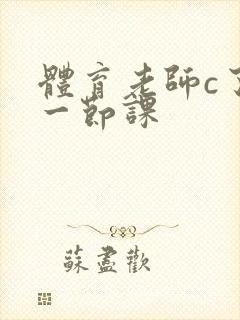 體育老師c了
一節課
蘇盡歡